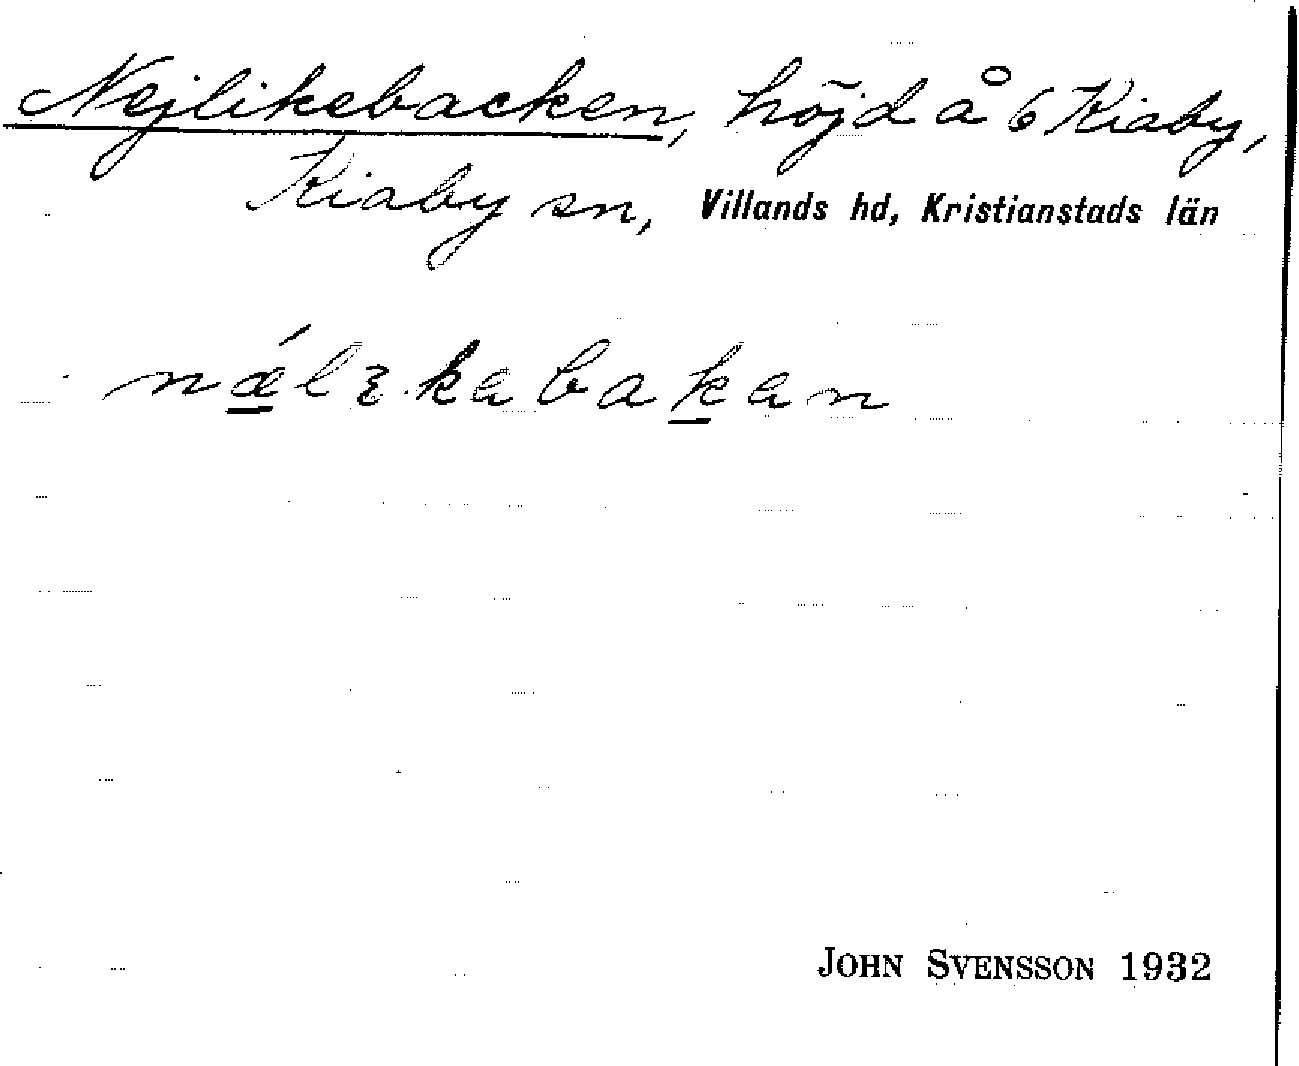 Nejlikebacken, höjd å 6 Kiaby,
Kiaby sn, Villands hd, Kristianstads län
nǽlɪkabakan
JOHN SVENSSON 1932